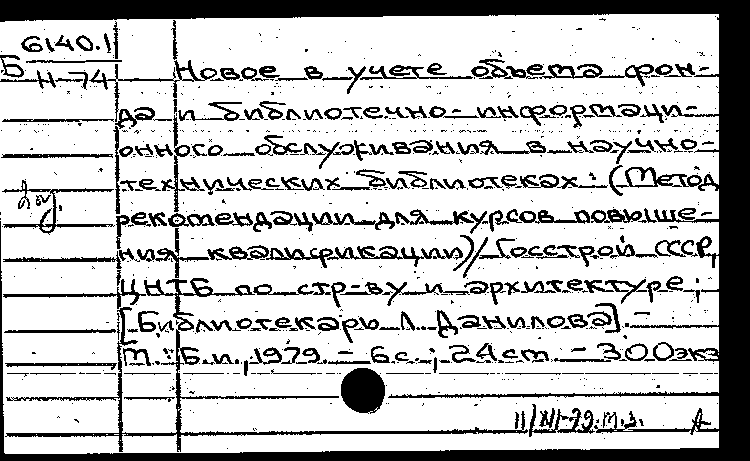 6140.1
Б Н-74
Новое в учете объема фон-
да и библиотечно-информаци-
онного обслуживания в научно-
технических библиотеках: (Метод
рекомендации для курсов повыше-
ния квалификации)/Госстрой СССР,
ЦНТБ по стр-ву и архитектуре;
[Библиотекарь Л. Данилова].-
М.: Б.и., 1979. - 6с.; 24см. - 300экз